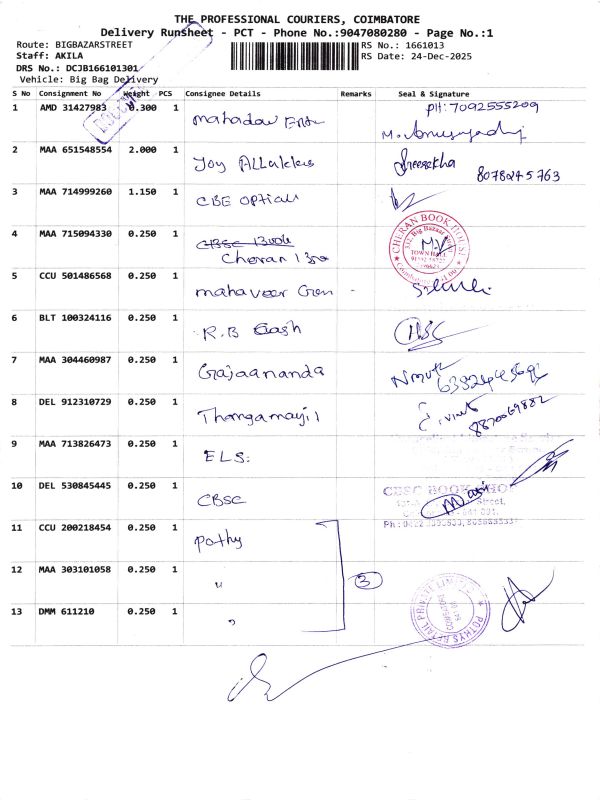 THE PROFESSIONAL COURIERS, COIMBATORE
Delivery Runsheet - PCT - Phone No.:9047080280 - Page No.:1
Route: BIGBAZARSTREET RS No.: 1661013
Staff: AKILA RS Date: 24-Dec-2025
DRS No.: DCJB166101301
Vehicle: Big Bag Delivery
S No Consignment No Weight PCS Consignee Details Remarks Seal & Signature
1 AMD 31427983 0.300 1 PH: 7092555209
2 MAA 651548554 2.000 1 Joy Sreerekha 8078245763
3 MAA 714999260 1.150 1 CBE optics
4 MAA 715094330 0.250 1 Cheran
CHERAN BOOK HOUSE
TOWN HALL
5 CCU 501486568 0.250 1 mahaveer Gen
6 BLT 100324116 0.250 1 R.B Cash
7 MAA 304460987 0.250 1 Gajaananda
8 DEL 912310729 0.250 1 Thangamayil 8870069882
9 MAA 713826473 0.250 1 ELS:
10 DEL 530845445 0.250 1 CBSC
CBSC BOOK SHOP
11 CCU 200218454 0.250 1 pothy
12 MAA 303101058 0.250 1 " 3
13 DMM 611210 0.250 1 "
POTHYS RETAIL PRIVATE LIMITED